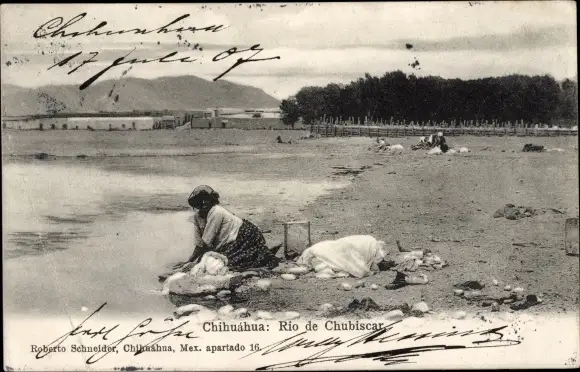 Chihuhua
17 Juli 07
Chihuáhua: Rio de Chubiscar
Roberto Schneider, Chihuáhua, Mex. apartado 16.